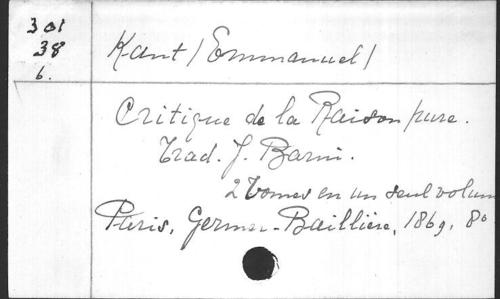 301
38
6.
Kant (Emmanuel)
Critique de la Raison pure.
Trad. J. Barni.
2 Tomes en un seul volum
Paris, Germer-Baillière, 1869, 8o